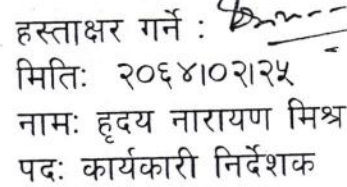 हस्ताक्षर गर्ने :
मितिः २०६४।०२।२५
नामः हृदय नारायण मिश्र
पदः कार्यकारी निर्देशक